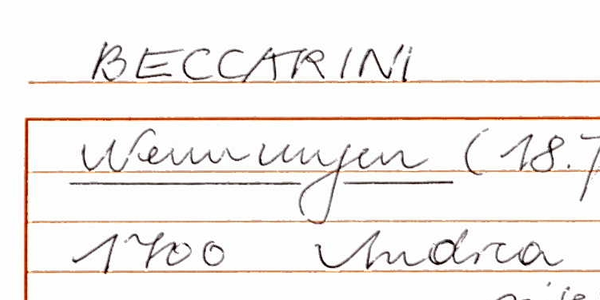 BECCARINI
Nennungen (18.
1700 Andrea